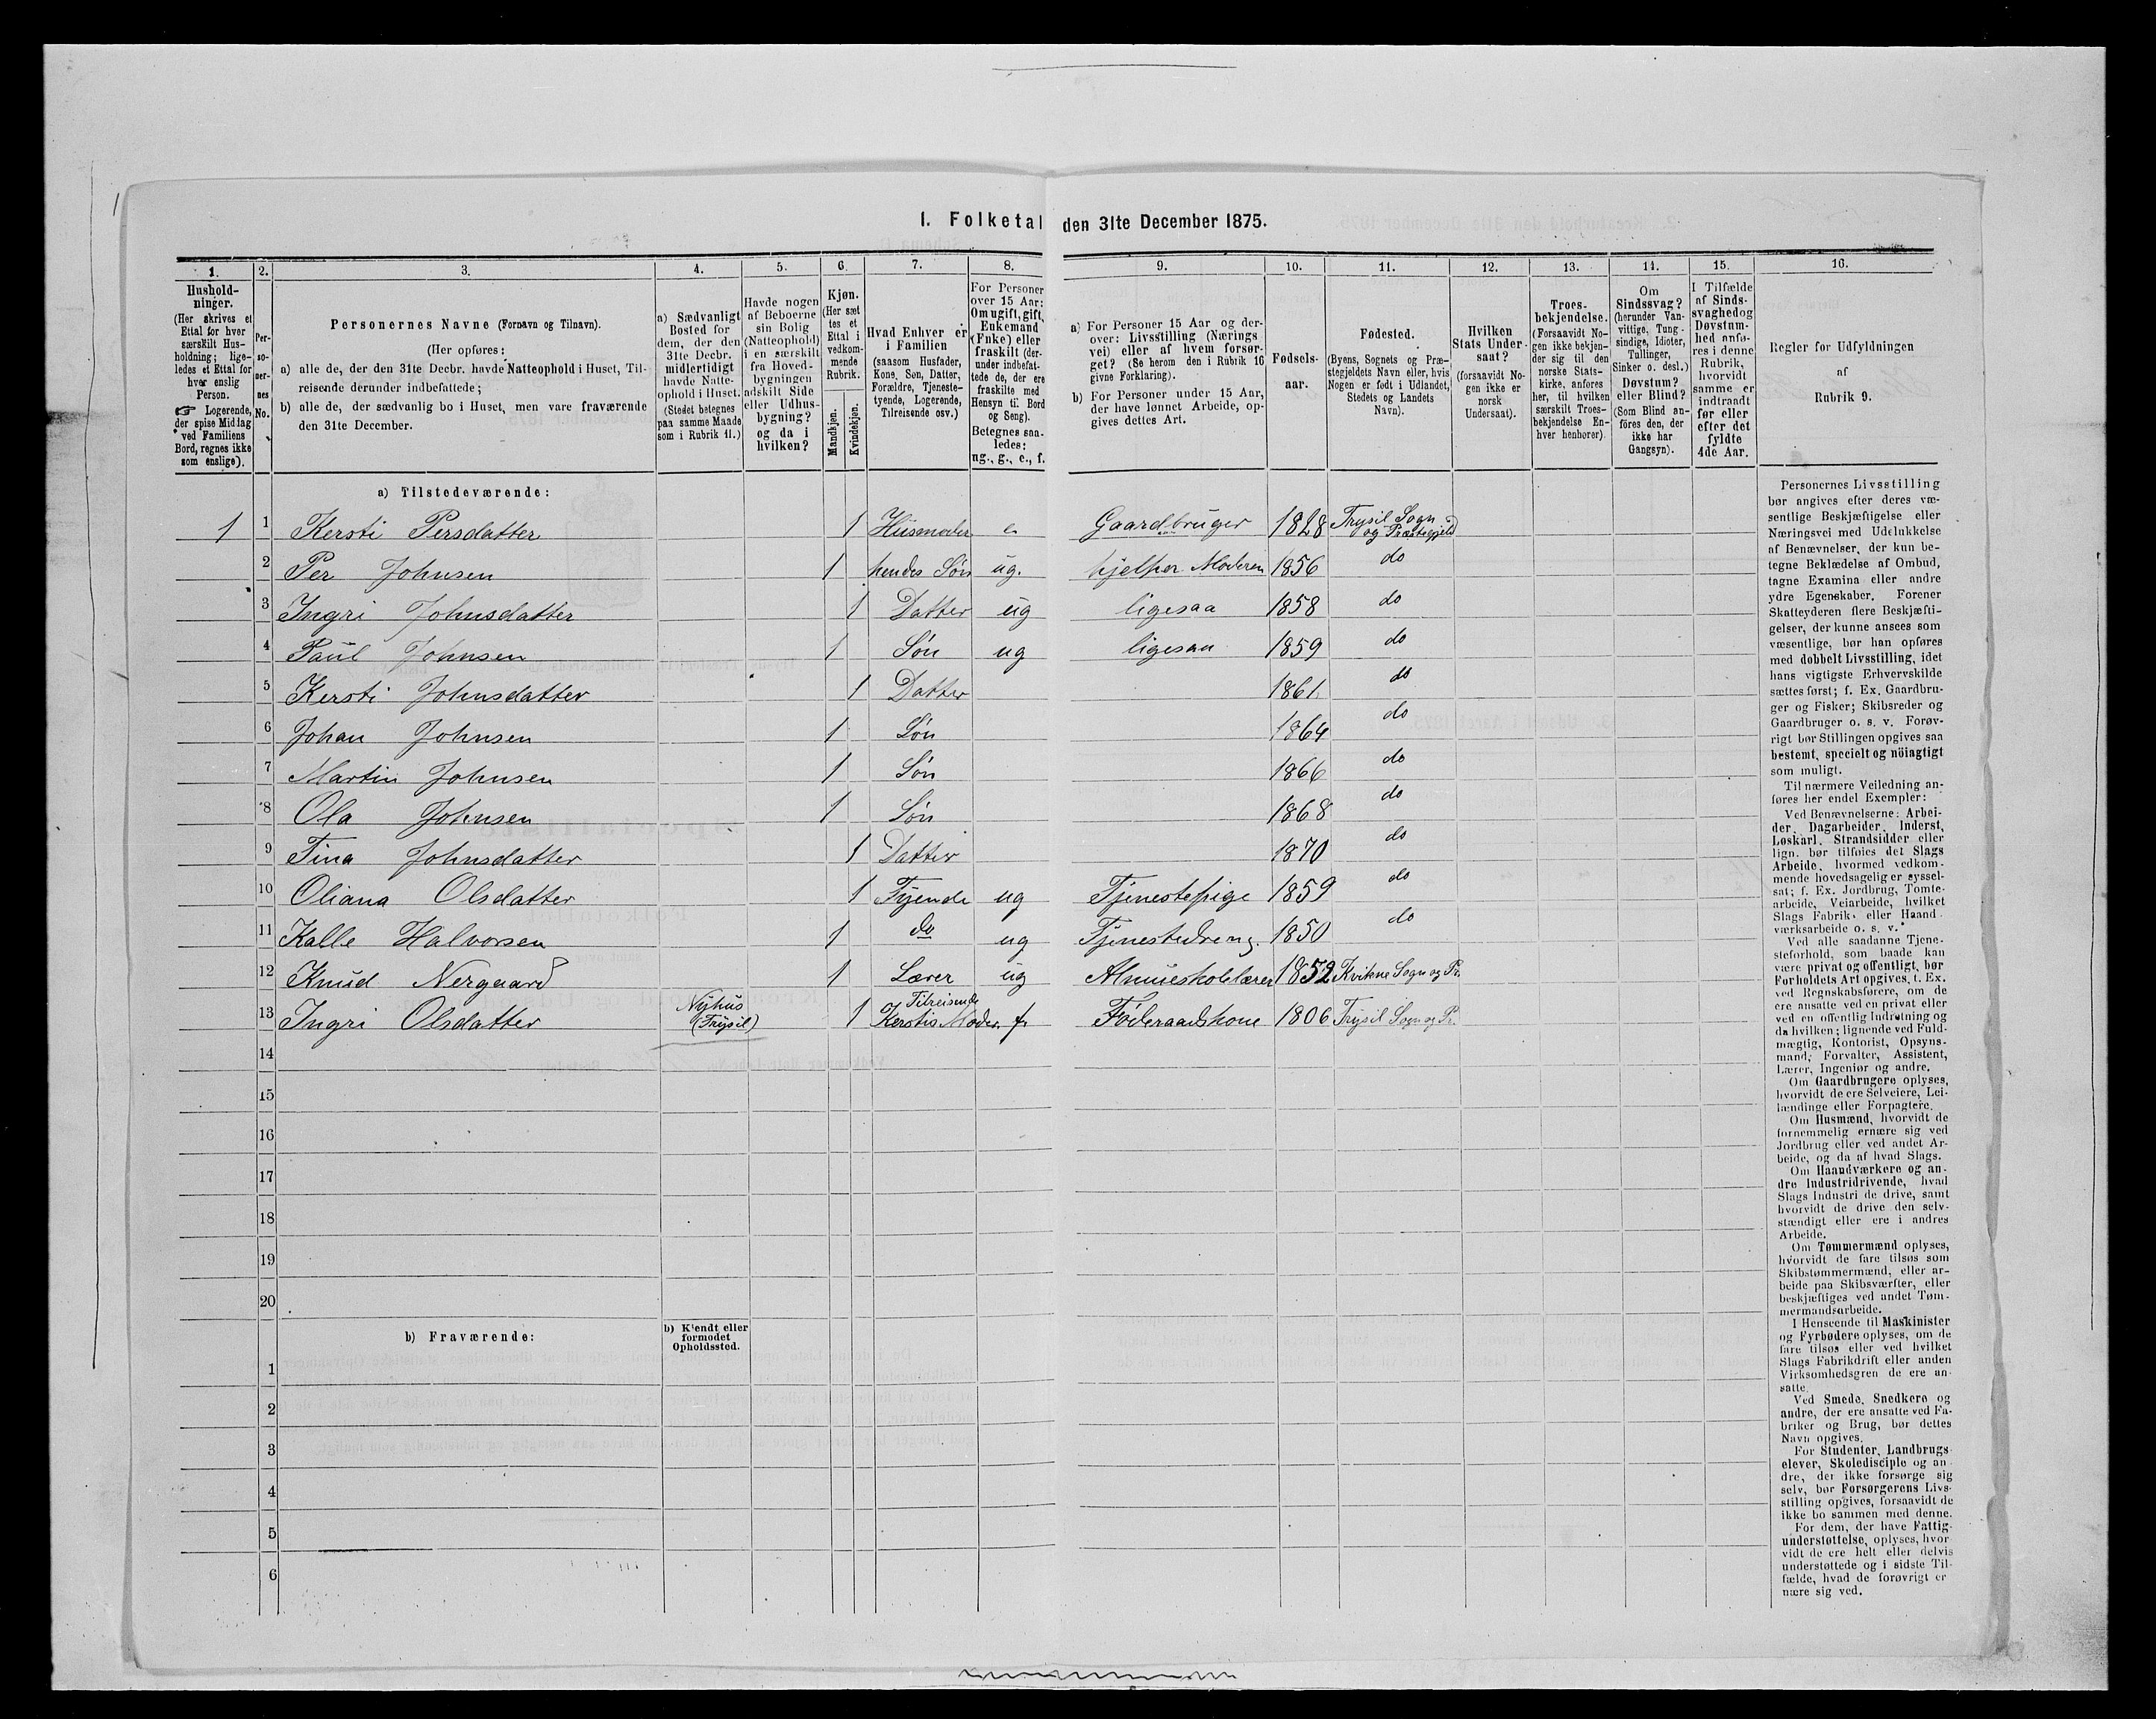 1. Folketal den 31te December 1875.
1. 2. 3. 4. 5. 6. 7. 8. 9. 10. 11. 12. 13. 14. 15. 16.
Hushold-
ninger.
(Her skrives et
Ettal for hver
særskilt Hus-
holdning; lige-
ledes et Ettal for
hver enslig
Person.
☞ Logerende,
der spise Middag
ved Familiens
Bord, regnes ikke
som enslige).
Per-
so-
ner-
nes
No.
Personernes Navne (Fornavn og Tilnavn).
(Her opføres:
a) alle de, der den 31te Decbr. havde Natteophold i Huset, Til-
reisende derunder indbefattede;
b) alle de, der sædvanlig bo i Huset, men vare fraværende
den 31te December.
a) Sædvanligt
Bosted for
dem, der den
31te Decbr.
midlertidigt
havde Natte-
ophold i Huset.
(Stedet betegnes
paa samme Maade
som i Rubrik 11.)
Havde nogen
af Beboerne
sin Bolig
(Natteophold)
i en særskilt
fra Hoved-
bygningen
adskilt Side
eller Udhus-
bygning?
og da i
hvilken?
Kjøn.
(Her sæt
tes et
Ettal i
vedkom-
mende
Rubrik.
Mandkjøn.
Kvindekjøn.
Hvad Enhver er
i Familien
(saasom Husfader,
Kone, Søn, Datter,
Forældre, Tjeneste-
tyende, Logerende,
Tilreisende osv.)
For Personer
over 15 Aar:
Om ugift, gift,
Enkemand
(Enke) eller
fraskilt (der-
under indbefat-
tede de, der ere
fraskilte med
Hensyn til Bord
og Seng).
Betegnes saa-
ledes:
ug., g., e., f.
a) For Personer 15 Aar og der-
over: Livsstilling (Nærings
vei) eller af hvem forsør-
get? (Se herom den i Rubrik 16
givne Forklaring).
b) For Personer under 15 Aar,
der have lønnet Arbeide, op-
gives dettes Art.
Fødsels-
aar.
Fødested.
(Byens, Sognets og Præ-
stegjeldets Navn eller, hvis
Nogen er født i Udlandet,
Stedets og Landets
Navn).
Hvilken
Stats Under-
saat?
(forsaavidt No-
gen ikke er
norsk
Undersaat).
Troes-
bekjendelse.
(Forsaavidt No-
gen ikke bekjen-
der sig til den
norske Stats-
kirke, anføres
her, til hvilken
særskilt Troes-
bekjendelse En-
hver henhører).
Om
Sindssvag?
(herunder Van-
vittige, Tung-
sindige, Idioter,
Tullinger,
Sinker o. desl.)
Døvstum?
eller Blind?
(Som Blind an-
föres den, der
ikke har
Gangsyn).
I Tilfælde
af Sinds-
svaghed og
Døvstum-
hed anfø-
res i denne
Rubrik,
hvorvidt
samme er
indtraadt
før eller
efter det
fyldte
4de Aar.
Regler for Udfyldningen
af
Rubrik 9.
a) Tilstedeværende:
1 1 Kersti Persdatter 1 Husmoder e Gaardbruger 1828 Trysil Sogn og Præstegjeld
2 Per Johnsen 1 hendes Søn ug. hjelper Moderen 1856 do
3 Ingri Johnsdatter 1 Datter ug ligesaa 1858 do
4 Paul Johnsen 1 Søn ug ligesaa 1859 do
5 Kersti Johnsdatter 1 Datter 1861 do
6 Johan Johnsen 1 Søn 1864 do
7 Martin Johnsen 1 Søn 1866 do
8 Ola Johnsen 1 Søn 1868 do
9 Tina Johnsdatter 1 Datter 1870 do
10 Oliana Olsdatter 1 Tyende ug Tjenestepige 1859 do
11 Kalle Halvorsen 1 do ug Tjenestedreng. 1850 do
12 Knud Nergaard 1 Lærer ug Almueskolelærer 1852 Kvikne Sogn og Pr.
13 Ingri Olsdatter Nyhus (Trysil) 1 Tilreisende Kerstis Moder. f Föderaadskone 1806 Trysil Sogn og Pr.
14
15
16
17
18
19
20
b) Fraværende:
b) Kjendt eller
formodet
Opholdssted.
1
2
3
4
5
6
Personernes Livsstilling
bør angives efter deres væ-
sentlige Beskjæftigelse eller
Næringsvei med Udelukkelse
af Benævnelser, der kun be-
tegne Beklædelse af Ombud,
tagne Examina eller andre
ydre Egenskaber. Forener
Skatteyderen flere Beskjæfti-
gelser, der kunne ansees som
væsentlige, bør han opføres
med dobbelt Livsstilling, idet
hans vigtigste Erhvervskilde
sættes først; f. Ex. Gaardbru-
ger og Fisker; Skibsreder og
Gaardbruger o. s. v. Forøv-
rigt bør Stillingen opgives saa
bestemt, specielt og nöiagtigt
som muligt.
Til nærmere Veiledning an-
føres her endel Exempler:
Ved Benævnelserne: Arbei-
der, Dagarbeider, Inderst,
Løskarl, Strandsidder eller
lign. bør tilføies det Slags
Arbeide, hvormed vedkom-
mende hovedsagelig er syssel-
sat; f. Ex. Jordbrug, Tomte-
arbeide, Veiarbeide, hvilket
Slags Fabrik- eller Haand-
værksarbeide o. s. v.
Ved alle saadanne Tjene-
steforhold, som baade kan
være privat og offentligt, bør
Forholdets Art opgives, t. Ex.
ved Regnskabsførere, om de
ere ansatte ved en privat eller
ved en offentlig Indretning og
da hvilken; lignende ved Fuld-
mægtig, Kontorist, Opsyns-
mand, Forvalter, Assistent,
Lærer, Ingeniør og andre.
Om Gaardbrugere oplyses,
hvorvidt de ere Selveiere, Lei-
lændinge eller Forpagtere.
Om Husmænd, hvorvidt de
fornemmelig ernære sig ved
Jordbrug eller ved andet Ar-
beide, og da af hvad Slags.
Om Haandværkere og an-
dre Industridrivende, hvad
Slags Industri de drive, samt
hvorvidt de drive den selv-
stændigt eller ere i andres
Arbeide.
Om Tømmermænd oplyses,
hvorvidt de fare tilsøs som
Skibstømmermænd, eller ar-
beide paa Skibsværfter, eller
beskjæftiges ved andet Tøm-
mermandsarbeide.
I Henseende til Maskinister
og Fyrbødere oplyses, om de
fare tilsøs eller ved hvilket
Slags Fabrikdrift eller anden
Virksomhedsgren de ere an-
satte.
Ved Smede, Snedkere og
andre, der ere ansatte ved Fa-
briker og Brug, bør dettes
Navn opgives.
For Studenter, Landbrugs-
elever, Skoledisciple og an-
dre, der ikke forsørge sig
selv, bør Forsørgerens Livs-
stilling opgives, forsaavidt de
ikke bo sammen med denne.
For dem, der have Fattig-
understøttelse, oplyses, hvor-
vidt de ere helt eller delvis
understøttede og i sidste Til-
fælde, hvad de forøvrigt er-
nære sig ved.